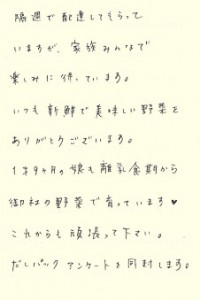 隔週で配達してもらって
いますが、家族みんなで
楽しみに待っています。
いつも新鮮で美味しい野菜を
ありがとうございます。
1才9ヶ月の娘も離乳食期から
御社の野菜で育っています♥
これからも頑張って下さい。
だしパック アンケートを同封します。